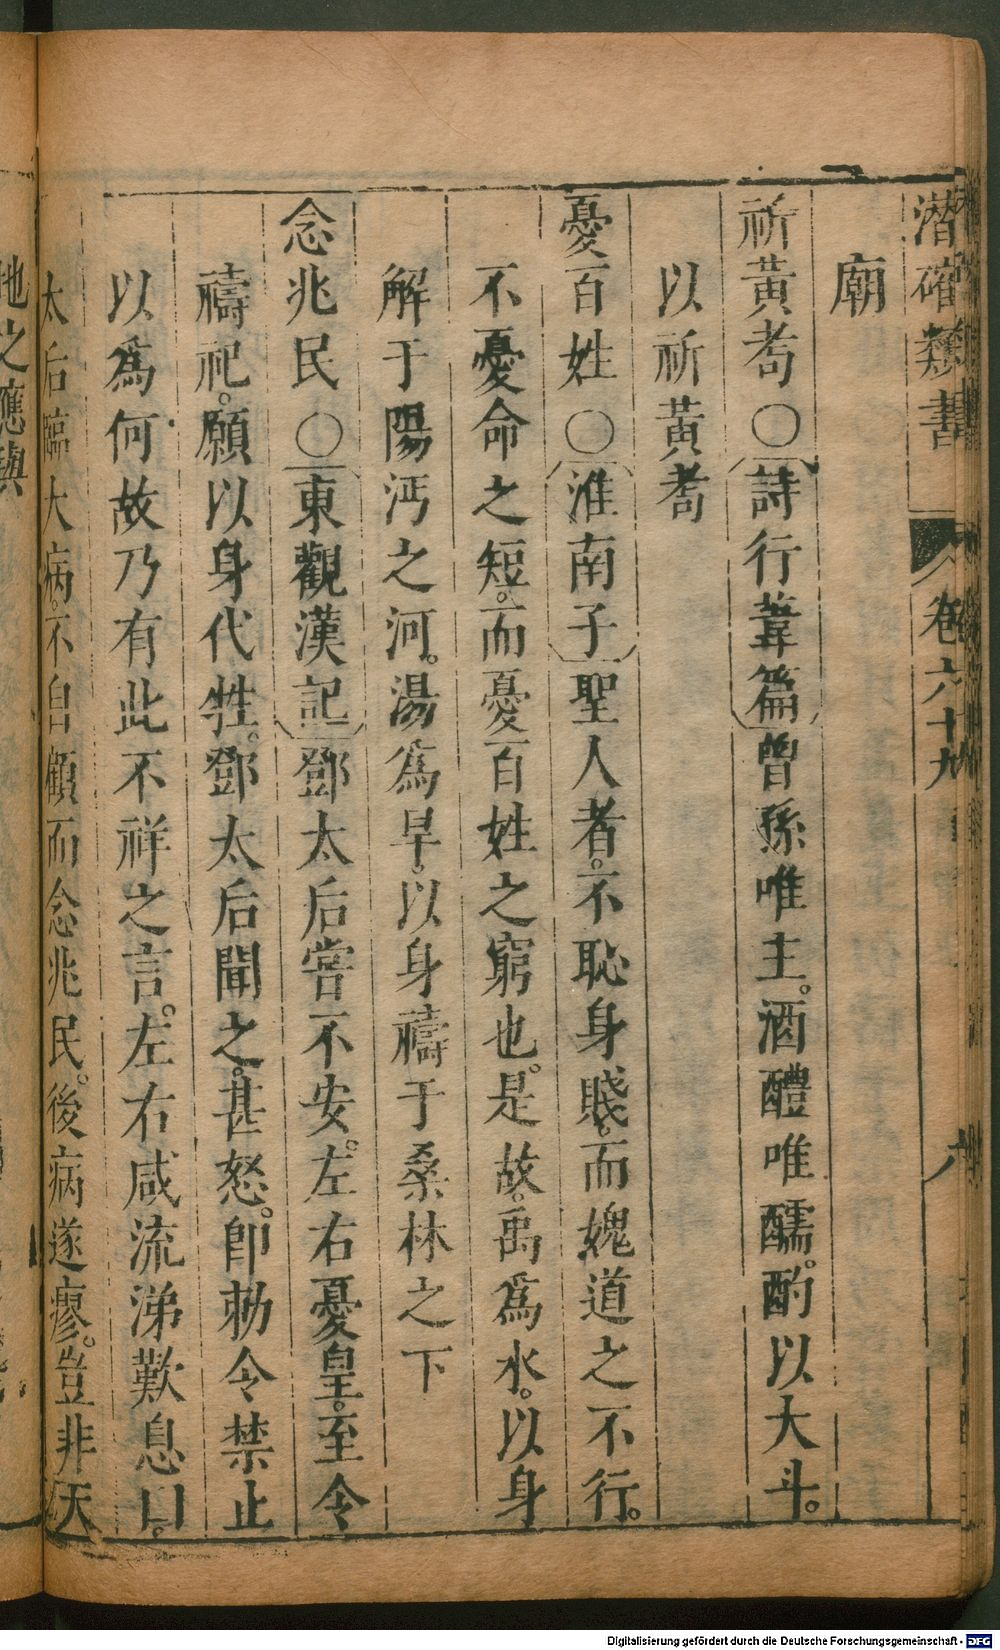 潛確類書 卷六十九
廟
祈黃耉○詩行葦篇曾孫唯主。酒醴唯醹。酌以大斗。
以祈黃耉
憂百姓○淮南子聖人者。不恥身賤。而媿道之不行。
不憂命之短。而憂百姓之窮也。是故。禹爲水。以身
解于陽沔之河。湯爲旱。以身禱于桑林之下
念兆民○東觀漢記鄧太后嘗不安。左右憂皇。至令
禱祀。願以身代牲。鄧太后聞之。甚怒。卽勅令禁止
以爲何故乃有此不祥之言。左右咸流涕歎息曰。
太后臨大病。不自顧而念兆民。後病遂瘳。豈非天
地之應與
Digitalisierung gefördert durch die Deutsche Forschungsgemeinschaft - DFG